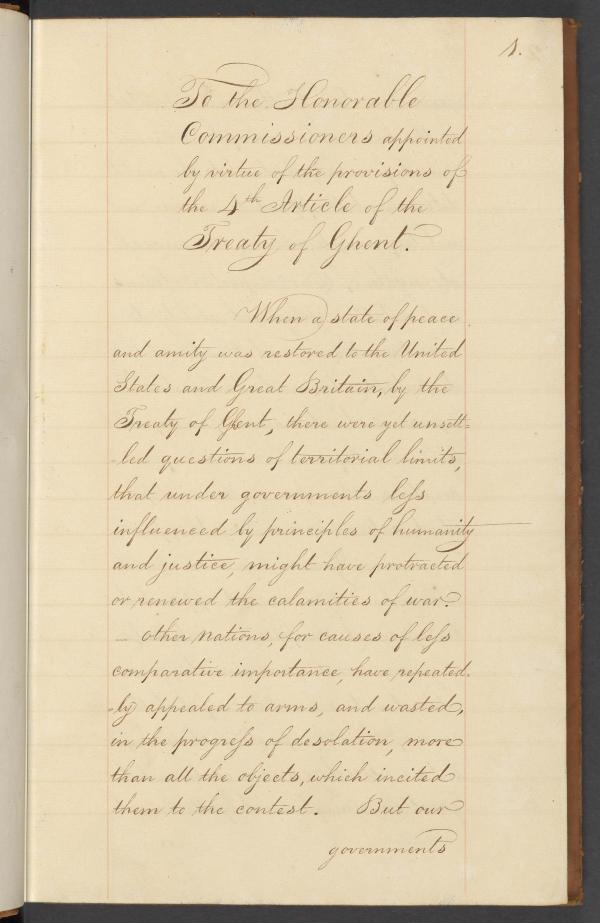 1.
To the Honorable
Commissioners appointed
by virtue of the provisions of
the 4th Article of the
Treaty of Ghent.
When a state of peace
and amity was restored to the United
States and Great Britain, by the
Treaty of Ghent, there were yet unsett=
-led questions of territorial limits,
that under governments less
influenced by principles of humanity
and justice, might have protracted
or renewed the calamities of war.
— other nations, for causes of less
comparative importance, have repeated-
-ly appealed to arms, and wasted,
in the progress of desolation, more
than all the objects, which incited
them to the contest. But our
governments